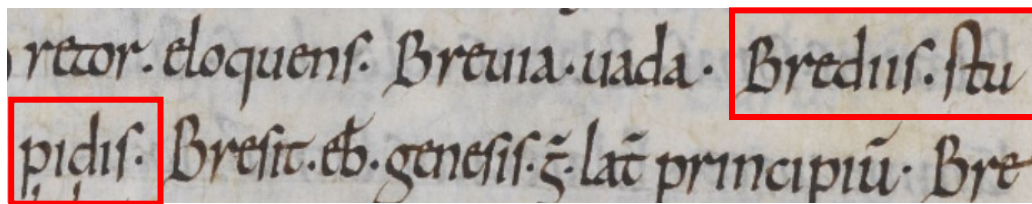 retor. eloquens. Breuia. uada. Bredus. stu
pidis. Bresit. eb̄. genesis. ḡ. lat̄ principiū. Bre